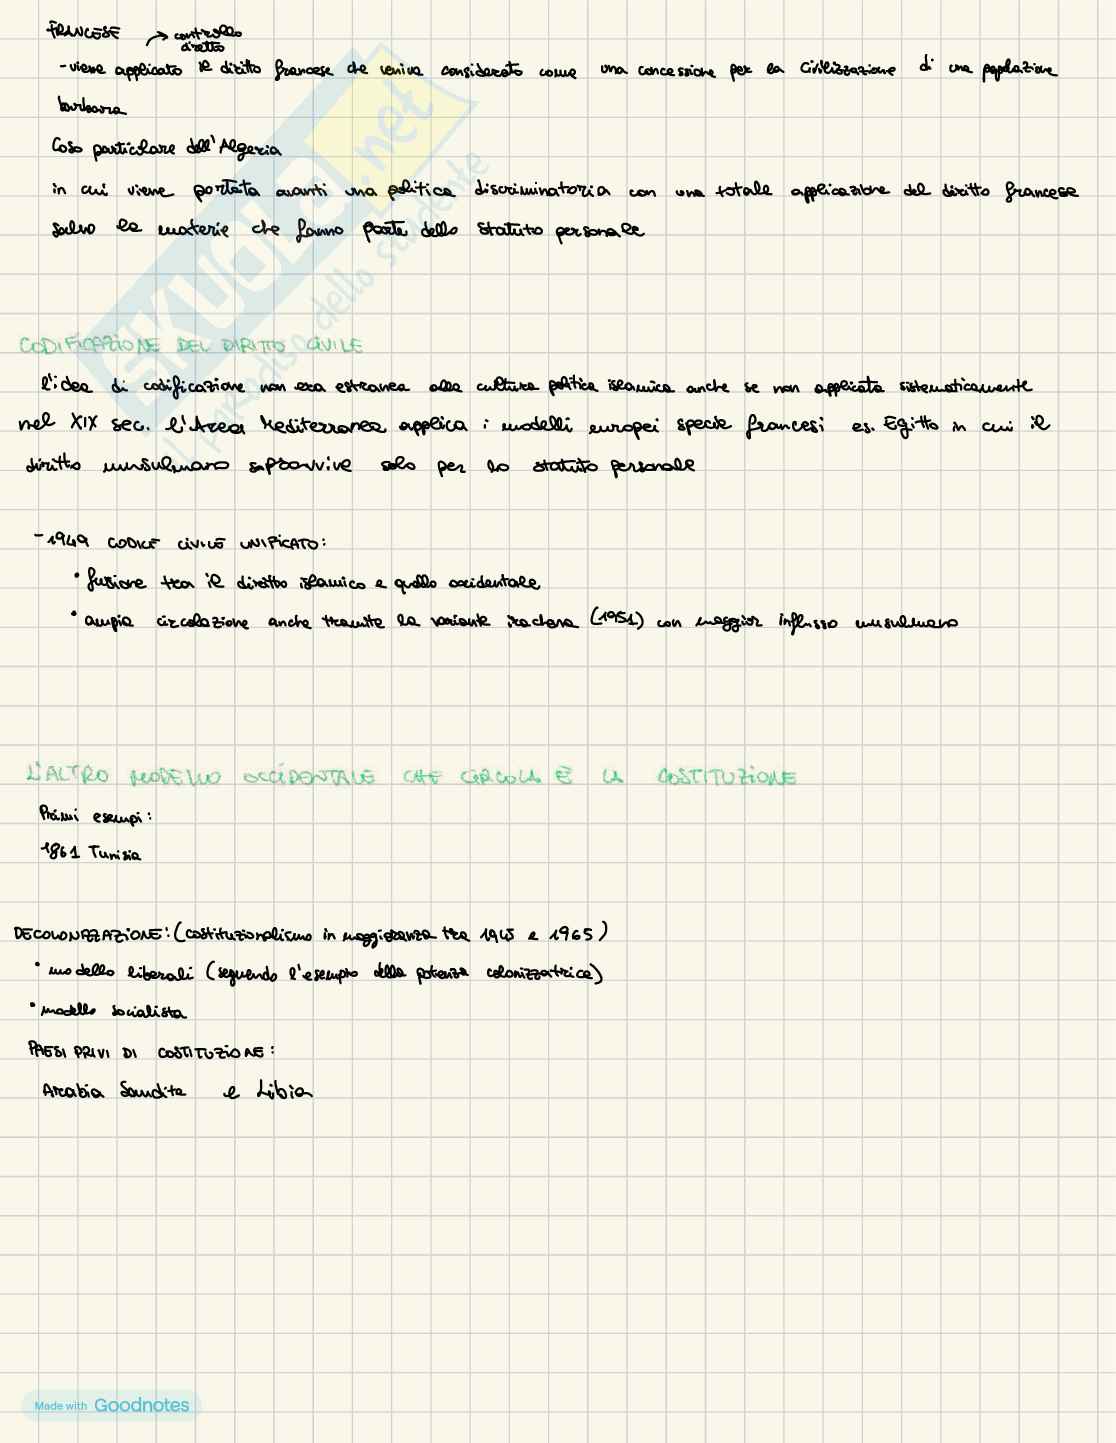 FRANCESE → controllo
diretto
- viene applicato il diritto francese che veniva considerato come una concessione per la civilizzazione di una popolazione
barbara
Caso particolare dell'Algeria
in cui viene portata avanti una politica discriminatoria con una totale applicazione del diritto francese
salvo le materie che fanno parte dello statuto personale
CODIFICAZIONE DEL DIRITTO CIVILE
l'idea di codificazione non era estranea alla cultura politica islamica anche se non applicata sistematicamente
nel XIX sec. l'Area Mediterranea applica i modelli europei specie francesi es. Egitto in cui il
diritto musulmano sopravvive solo per lo statuto personale
- 1949 CODICE CIVILE UNIFICATO:
• fusione tra il diritto islamico e quello occidentale
• ampia circolazione anche tramite la variante irachena (1951) con maggior influsso musulmano
L'ALTRO MODELLO OCCIDENTALE CHE CIRCOLA È LA COSTITUZIONE
Primi esempi:
1861 Tunisia
DECOLONIZZAZIONE: (costituzionalismo in maggioranza tra 1945 e 1965)
• modello liberali (seguendo l'esempio della potenza colonizzatrice)
• modello socialista
PAESI PRIVI DI COSTITUZIONE:
Arabia Saudita e Libia
SKUOLA.net
il paradiso dello studente
Made with Goodnotes